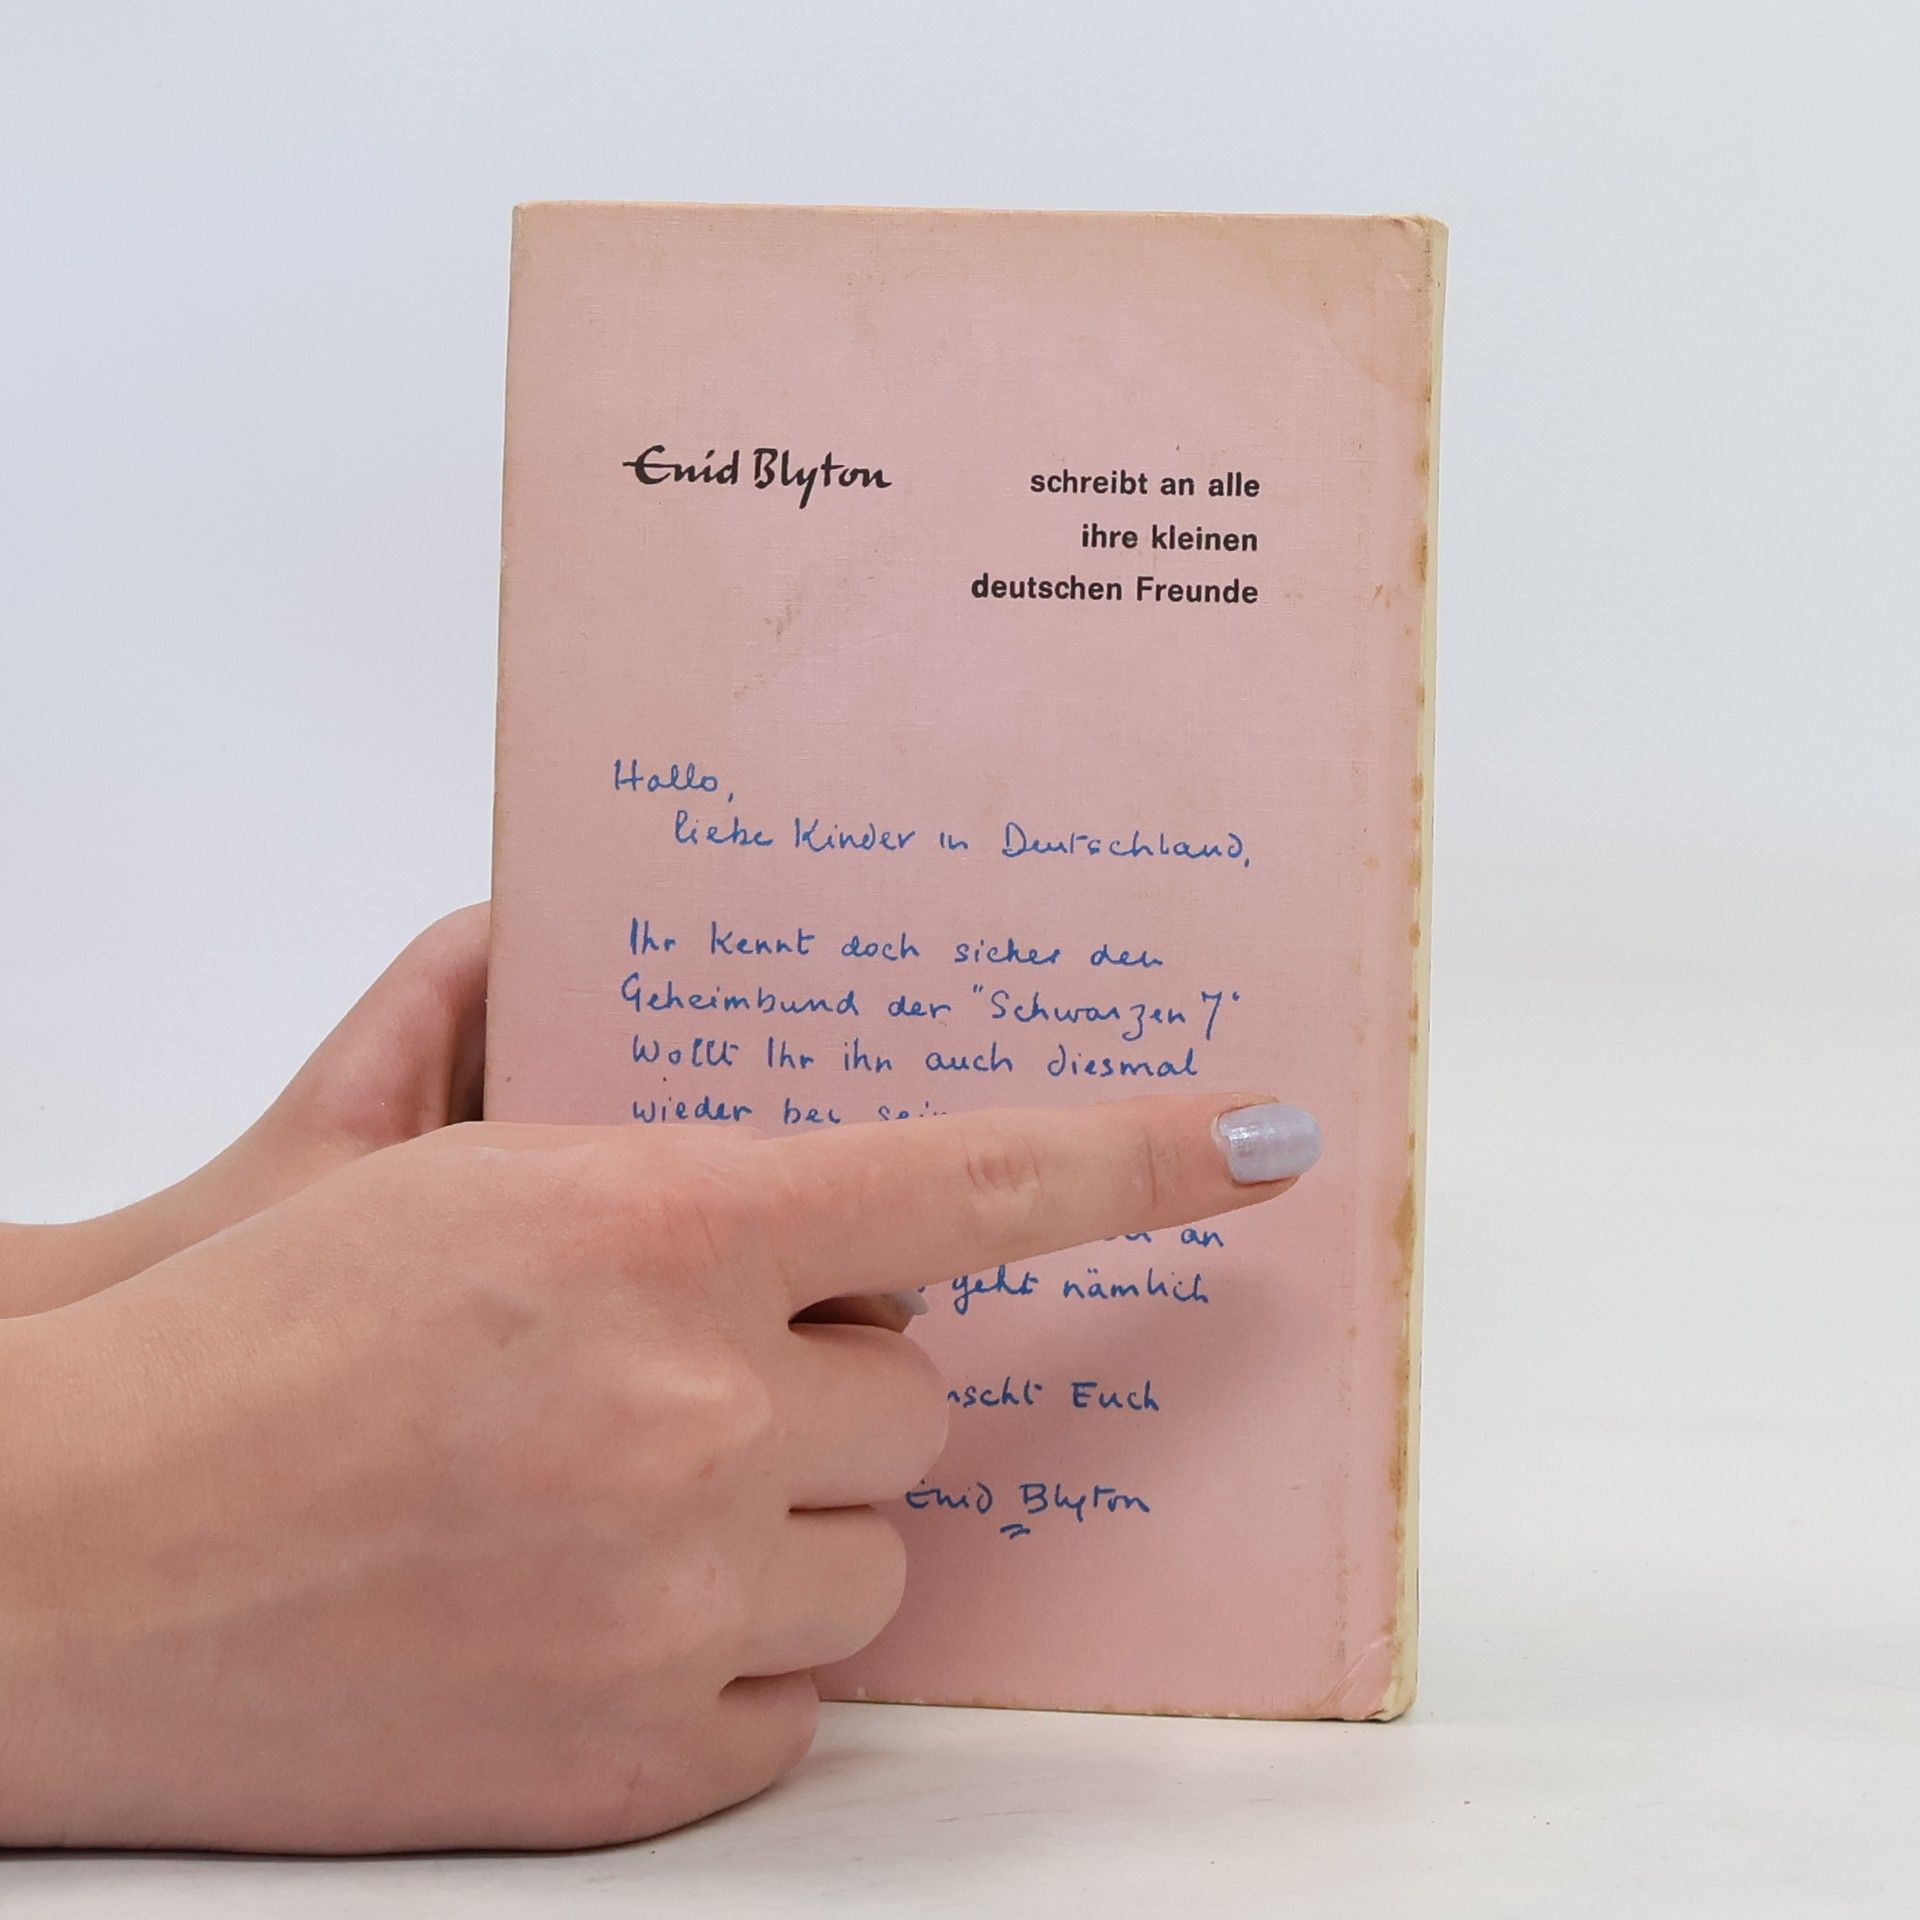 Enid Blyton schreibt an alle
ihre kleinen
deutschen Freunde
Hallo,
liebe Kinder in Deutschland,
Ihr kennt doch sicher den
Geheimbund der "Schwarzen 7"
Wollt Ihr ihn auch diesmal
wieder bei
an
geht nämlich
Euch
Enid Blyton